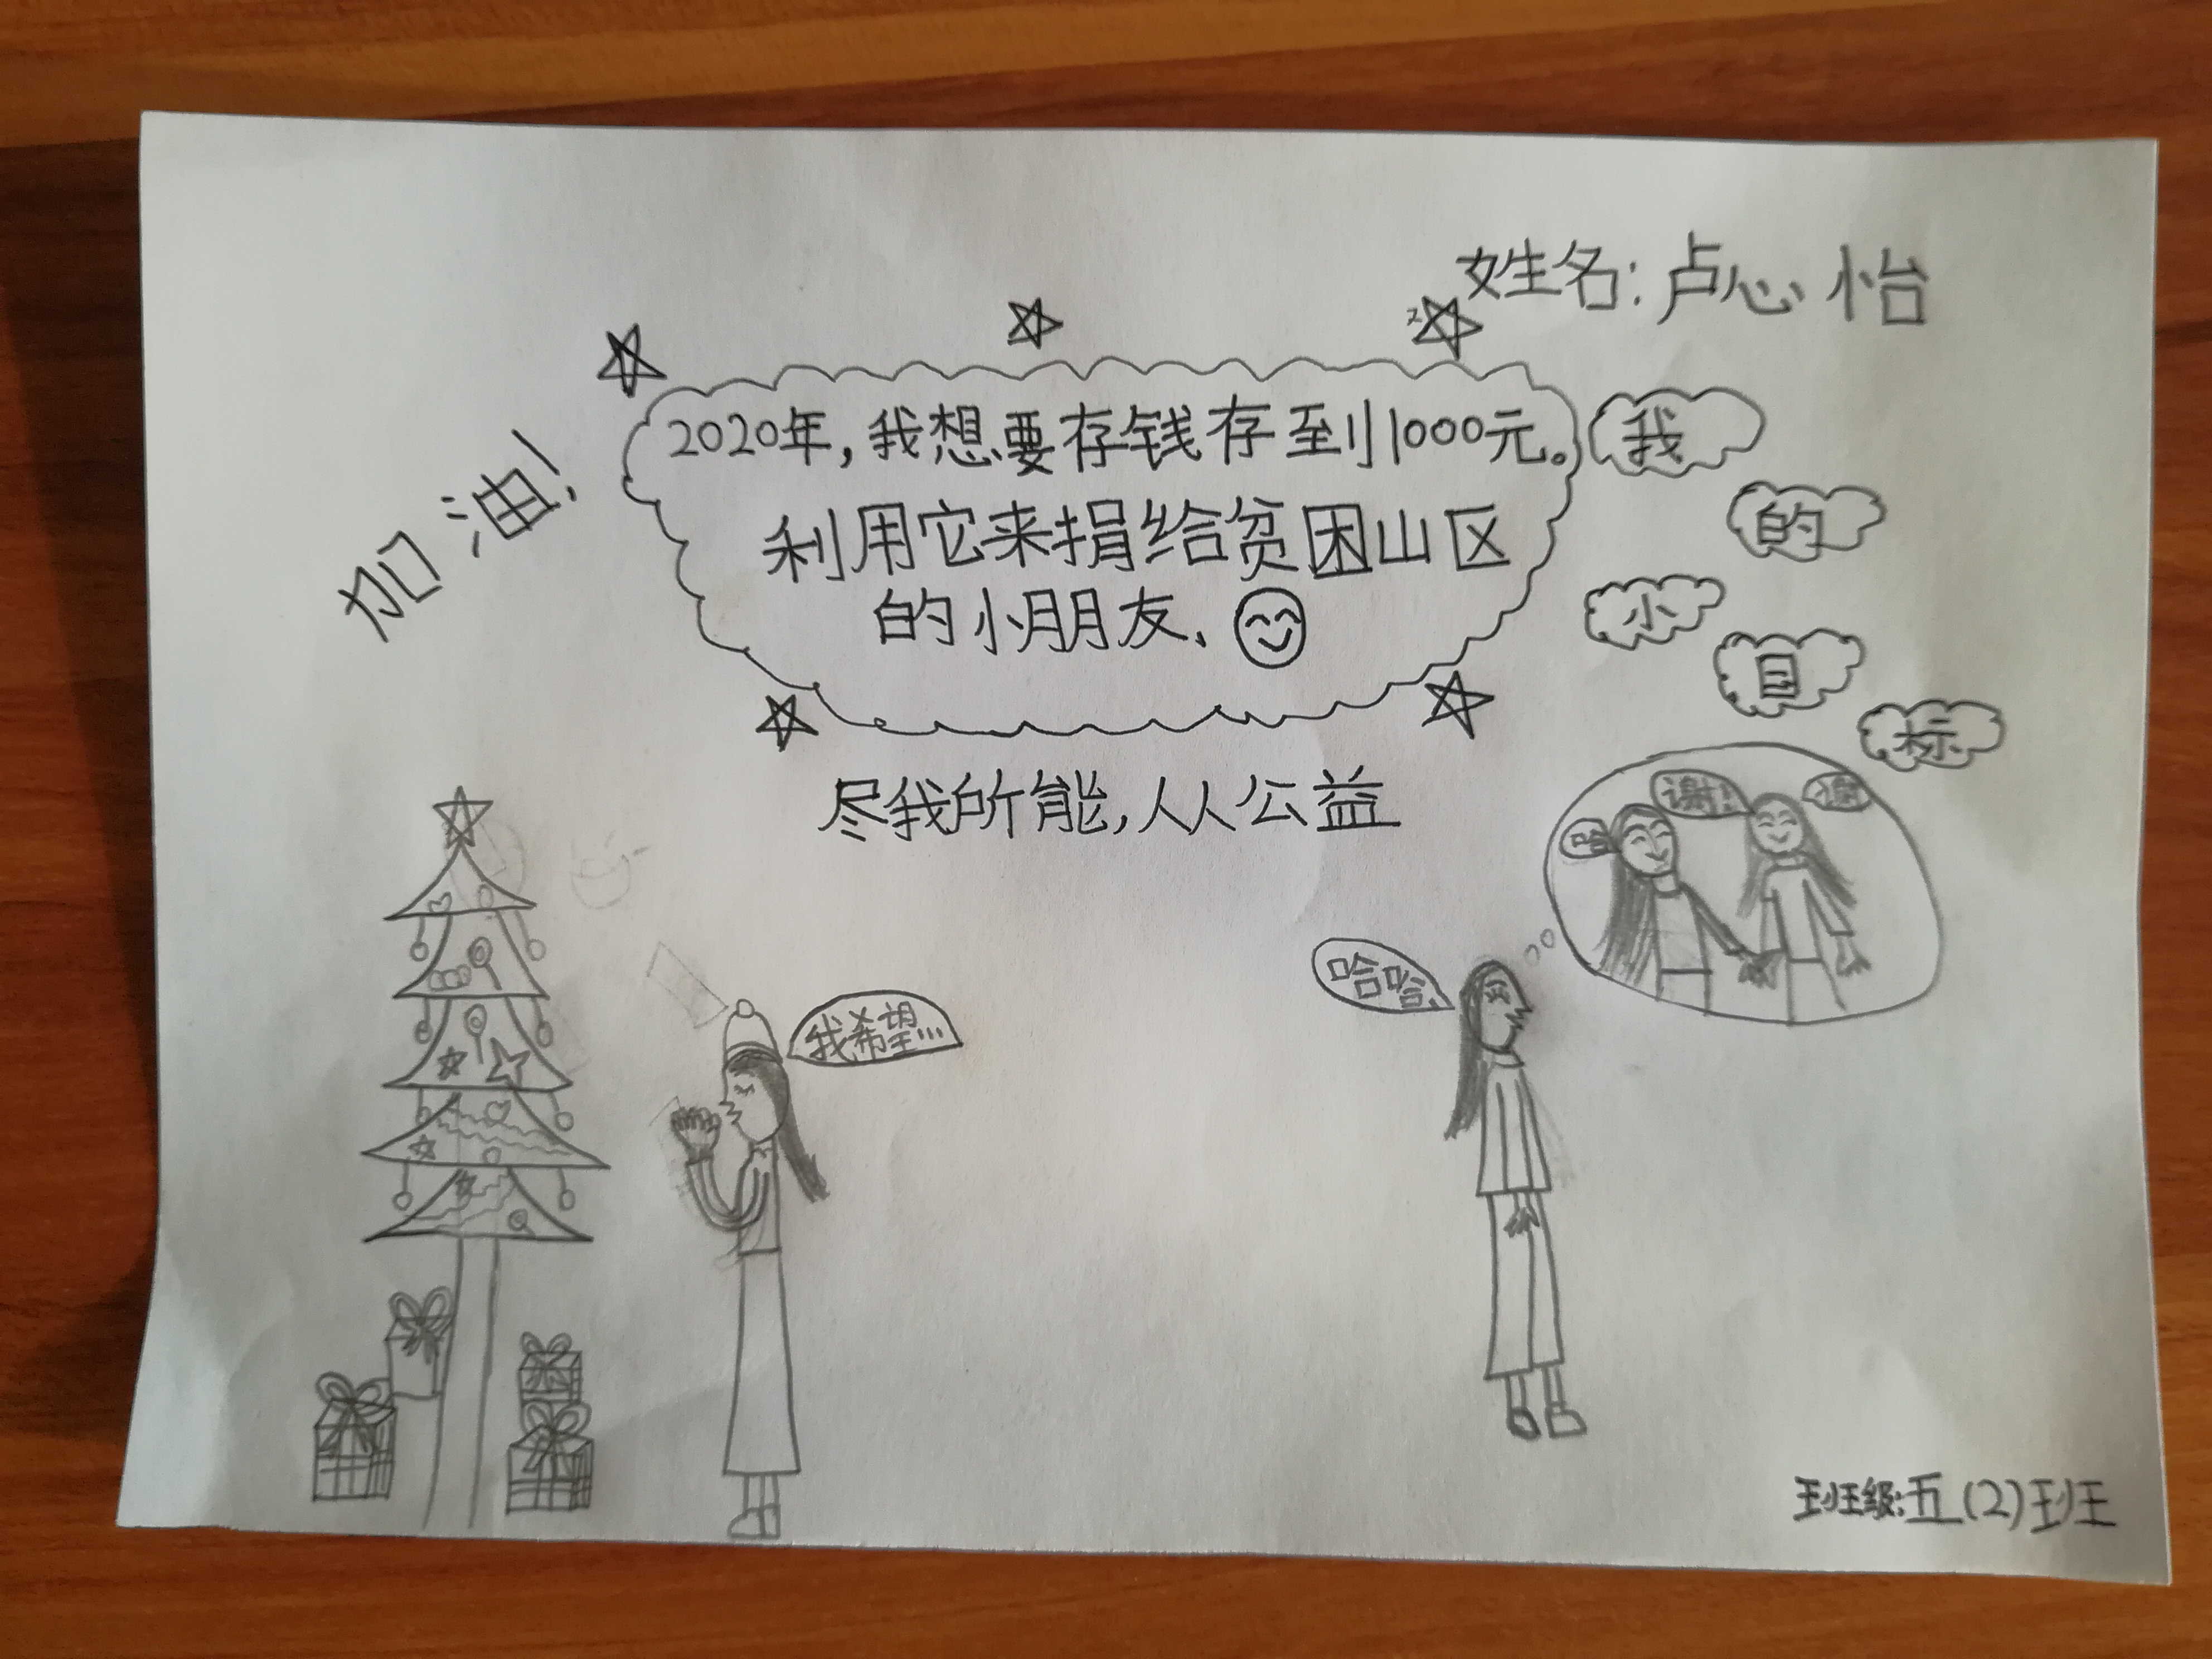 姓名:卢心怡
加油!
2020年,我想要存钱存到1000元。
利用它来捐给贫困山区
的小朋友、
我
的
小
目
标
尽我所能,人人公益
谢!
谢
哈
哈哈、
我希望...
班级:五(2)班